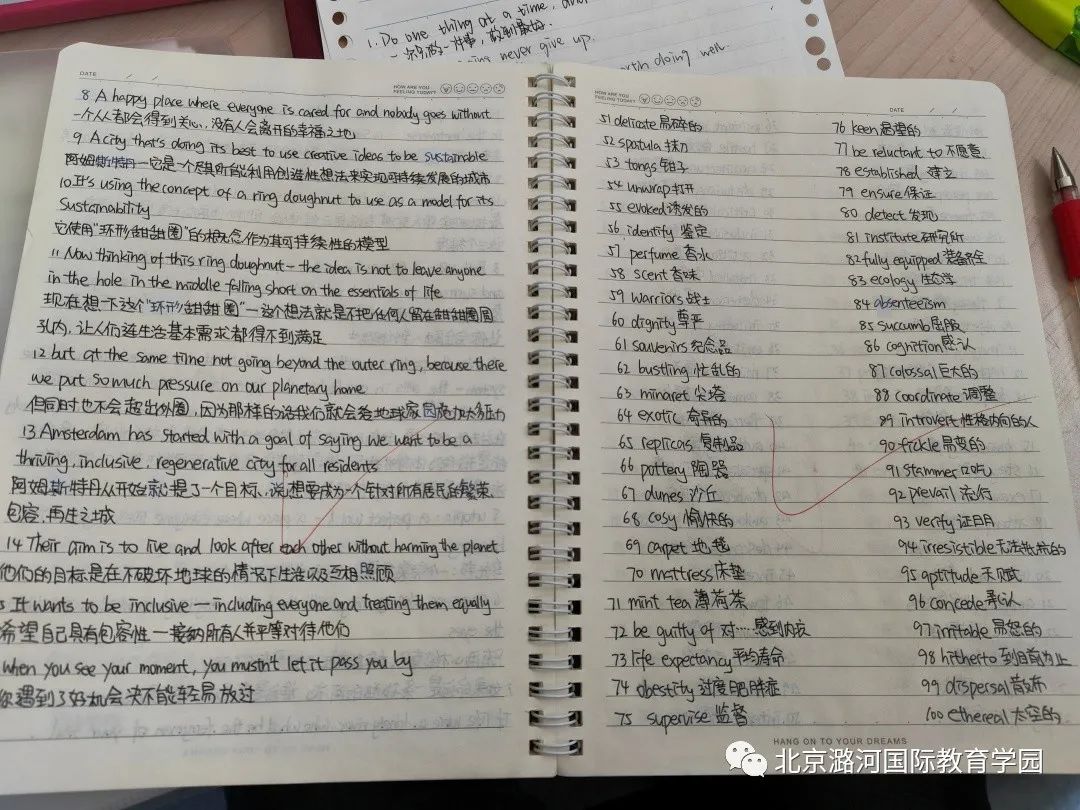 1. Do one thing at a time, and
一次只做一件事，做到最好
never give up.
worth doing well.
DATE
HOW ARE YOU
FEELING TODAY?
8. A happy place where everyone is cared for and nobody goes without
一个人人都会得到关心，没有人会离开的幸福之地
9 A city that's doing its best to use creative ideas to be sustainable
阿姆斯特丹一它是一个尽其所能利用创造性想法来实现可持续发展的城市
10 It's using the concept of a ring doughnut to use as a model for its
Sustainability
它使用"环形甜甜圈"的概念作为其可持续性的模型
11 Now thinking of this ring doughnut - the idea is not to leave anyone
in the hole in the middle falling short on the essentials of life
现在想一下这个"环形甜甜圈"一这个想法就是不把任何人留在甜甜圈圆
孔内，让人们连生活基本需求都得不到满足
12 but at the same time not going beyond the outer ring, because there
we put so much pressure on our planetary home
但同时也不会超出外圈，因为那样的话我们就会给地球家园施加太多压力
13 Amsterdam has started with a goal of saying we want to be a
thriving, inclusive, regenerative city for all residents
阿姆斯特丹从开始就提了一个目标，说想要成为一个针对所有居民的繁荣、
包容、再生之城
14 Their aim is to live and look after each other without harming the planet
他们的目标是在不破坏地球的情况下生活以及互相照顾
5 It wants to be inclusive — including everyone and treating them equally
希望自己具有包容性一接纳所有人并平等对待他们
when you see your moment, you mustn't let it pass you by
你遇到了好机会决不能轻易放过
HOW ARE YOU
FEELING TODAY?
DATE
51 delicate 易碎的
52 spatula 抹刀
53 tongs 钳子
54 unwrap 打开
55 evoked 诱发的
56 identify 鉴定
57 perfume 香水
58 scent 香味
59 warriors 战士
60 dignity 尊严
61 souvenirs 纪念品
62 bustling 忙乱的
63 minaret 尖塔
64 exotic 奇异的
65 replicas 复制品
66 pottery 陶器
67 dunes 沙丘
68 cosy 愉快的
69 carpet 地毯
70 mattress 床垫
71 mint tea 薄荷茶
72 be guilty of 对……感到内疚
73 life expectancy 平均寿命
74 obestity 过度肥胖症
75 supervise 监督
76 keen 渴望的
77 be reluctant to 不愿意
78 established 建立
79 ensure 保证
80 detect 发现
81 institute 研究所
82 fully equipped 装备齐全
83 ecology 生态学
84 absenteeism
85 succumb 屈服
86 cognition 感认
87 colossal 巨大的
88 coordinate 调整
89 introvert 性格内向的人
90 frickle 易变的
91 stammer 口吃
92 prevail 流行
93 verify 证明
94 irresistible 无法抵抗的
95 aptitude 天赋
96 concede 承认
97 irritable 易怒的
98 hitherto 到目前为止
99 dispersal 散布
100 ethereal 太空的
HANG ON TO YOUR DREAMS
北京潞河国际教育学园